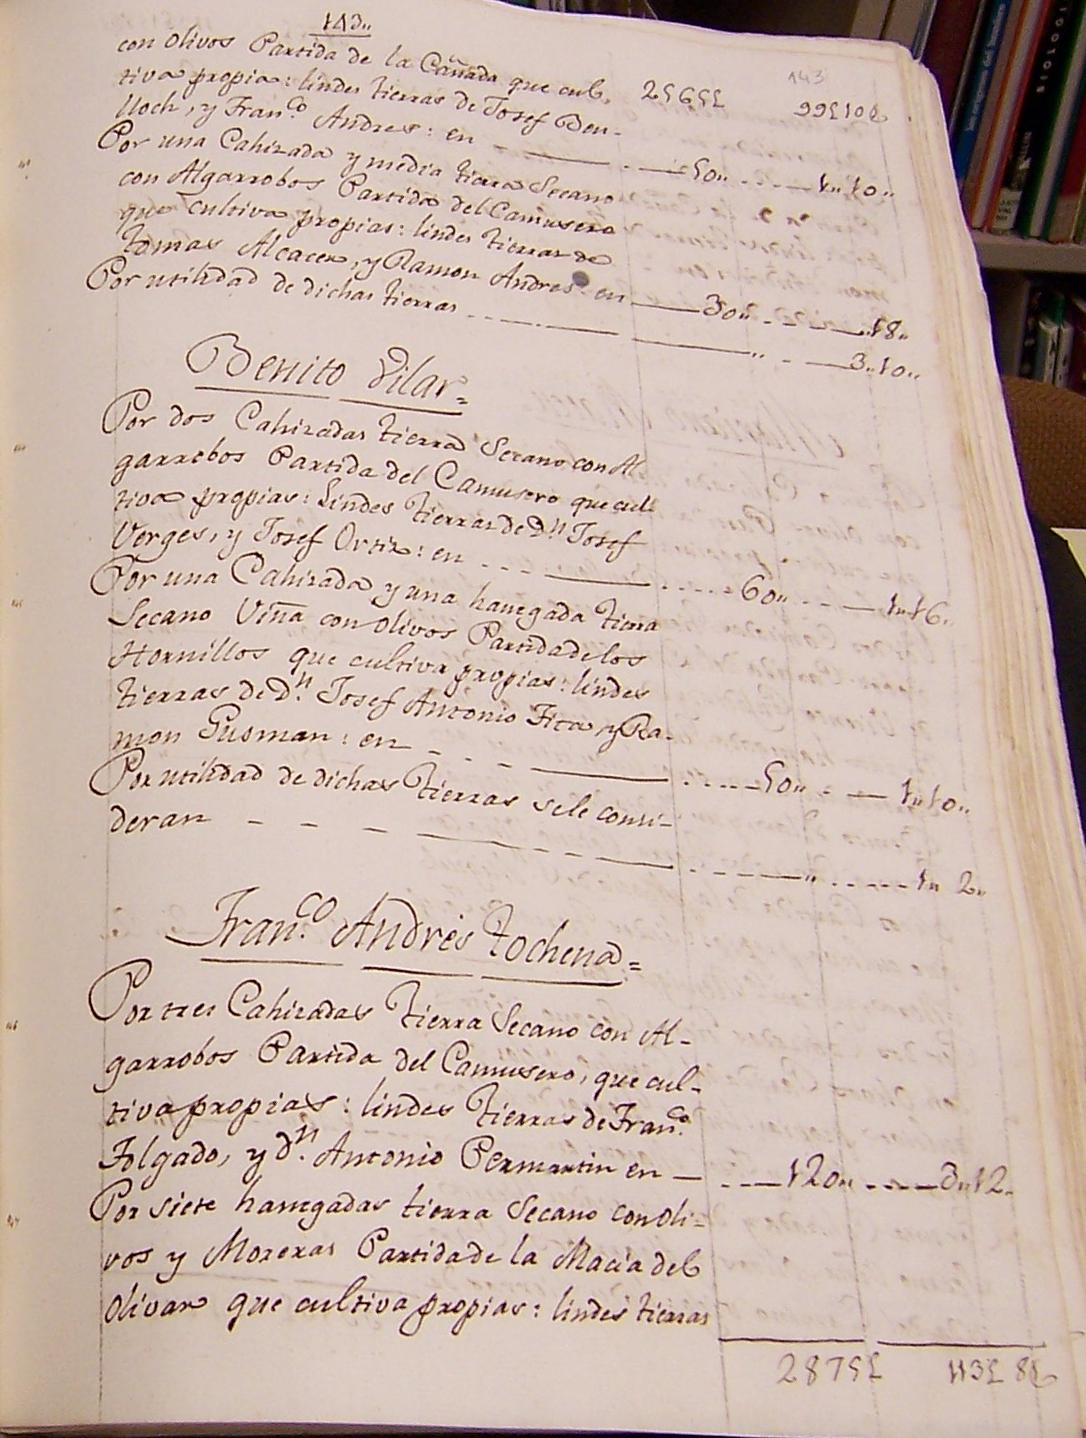 143..
143
con olivos Partida de la Cañada que cul, 2565£ 99£10§
tiva propia: lindes tierras de Josef Ben-
lloch, y Fran.co Andres: en 50.. 1..10..
Por una Cahizada y media tierra Secano
con Algarrobos Partida del Camusero
que cultiva propias: lindes tierras de
tomas Alcacer, y Ramon Andres: en 30.. ..18..
Por utilidad de dichas tierras .. 3..10..
Benito Vilar=
Por dos Cahizadas tierra Secano con Al
garrobos Partida del Camusero que cul
tiva propias: Lindes tierras de Dn Josef
Verges, y Josef Ortiz: en 60.. 1..16..
Por una Cahizada y una hanegada tierra
Secano Viña con olivos Partida de los
Hornillos que cultiva propias: lindes
tierras de Dn. Josef Antonio Fita y Ra-
mon Gusman: en 50.. 1..10..
Por utilidad de dichas tierras sele consi-
deran .. 1.. 2..
Fran.co Andrès tochena=
Por tres Cahizadas tierra Secano con Al-
garrobos Partida del Camusero, que cul-
tiva propias: lindes tierras de Fran.co
Folgado, y Dn. Antonio Permartin en 120.. 3..12..
Por siete hanegadas tierra Secano con oli-
vos y Moreras Partida de la Macia del
olivar que cultiva propias: lindes tierras
2875£ 113£ 8§